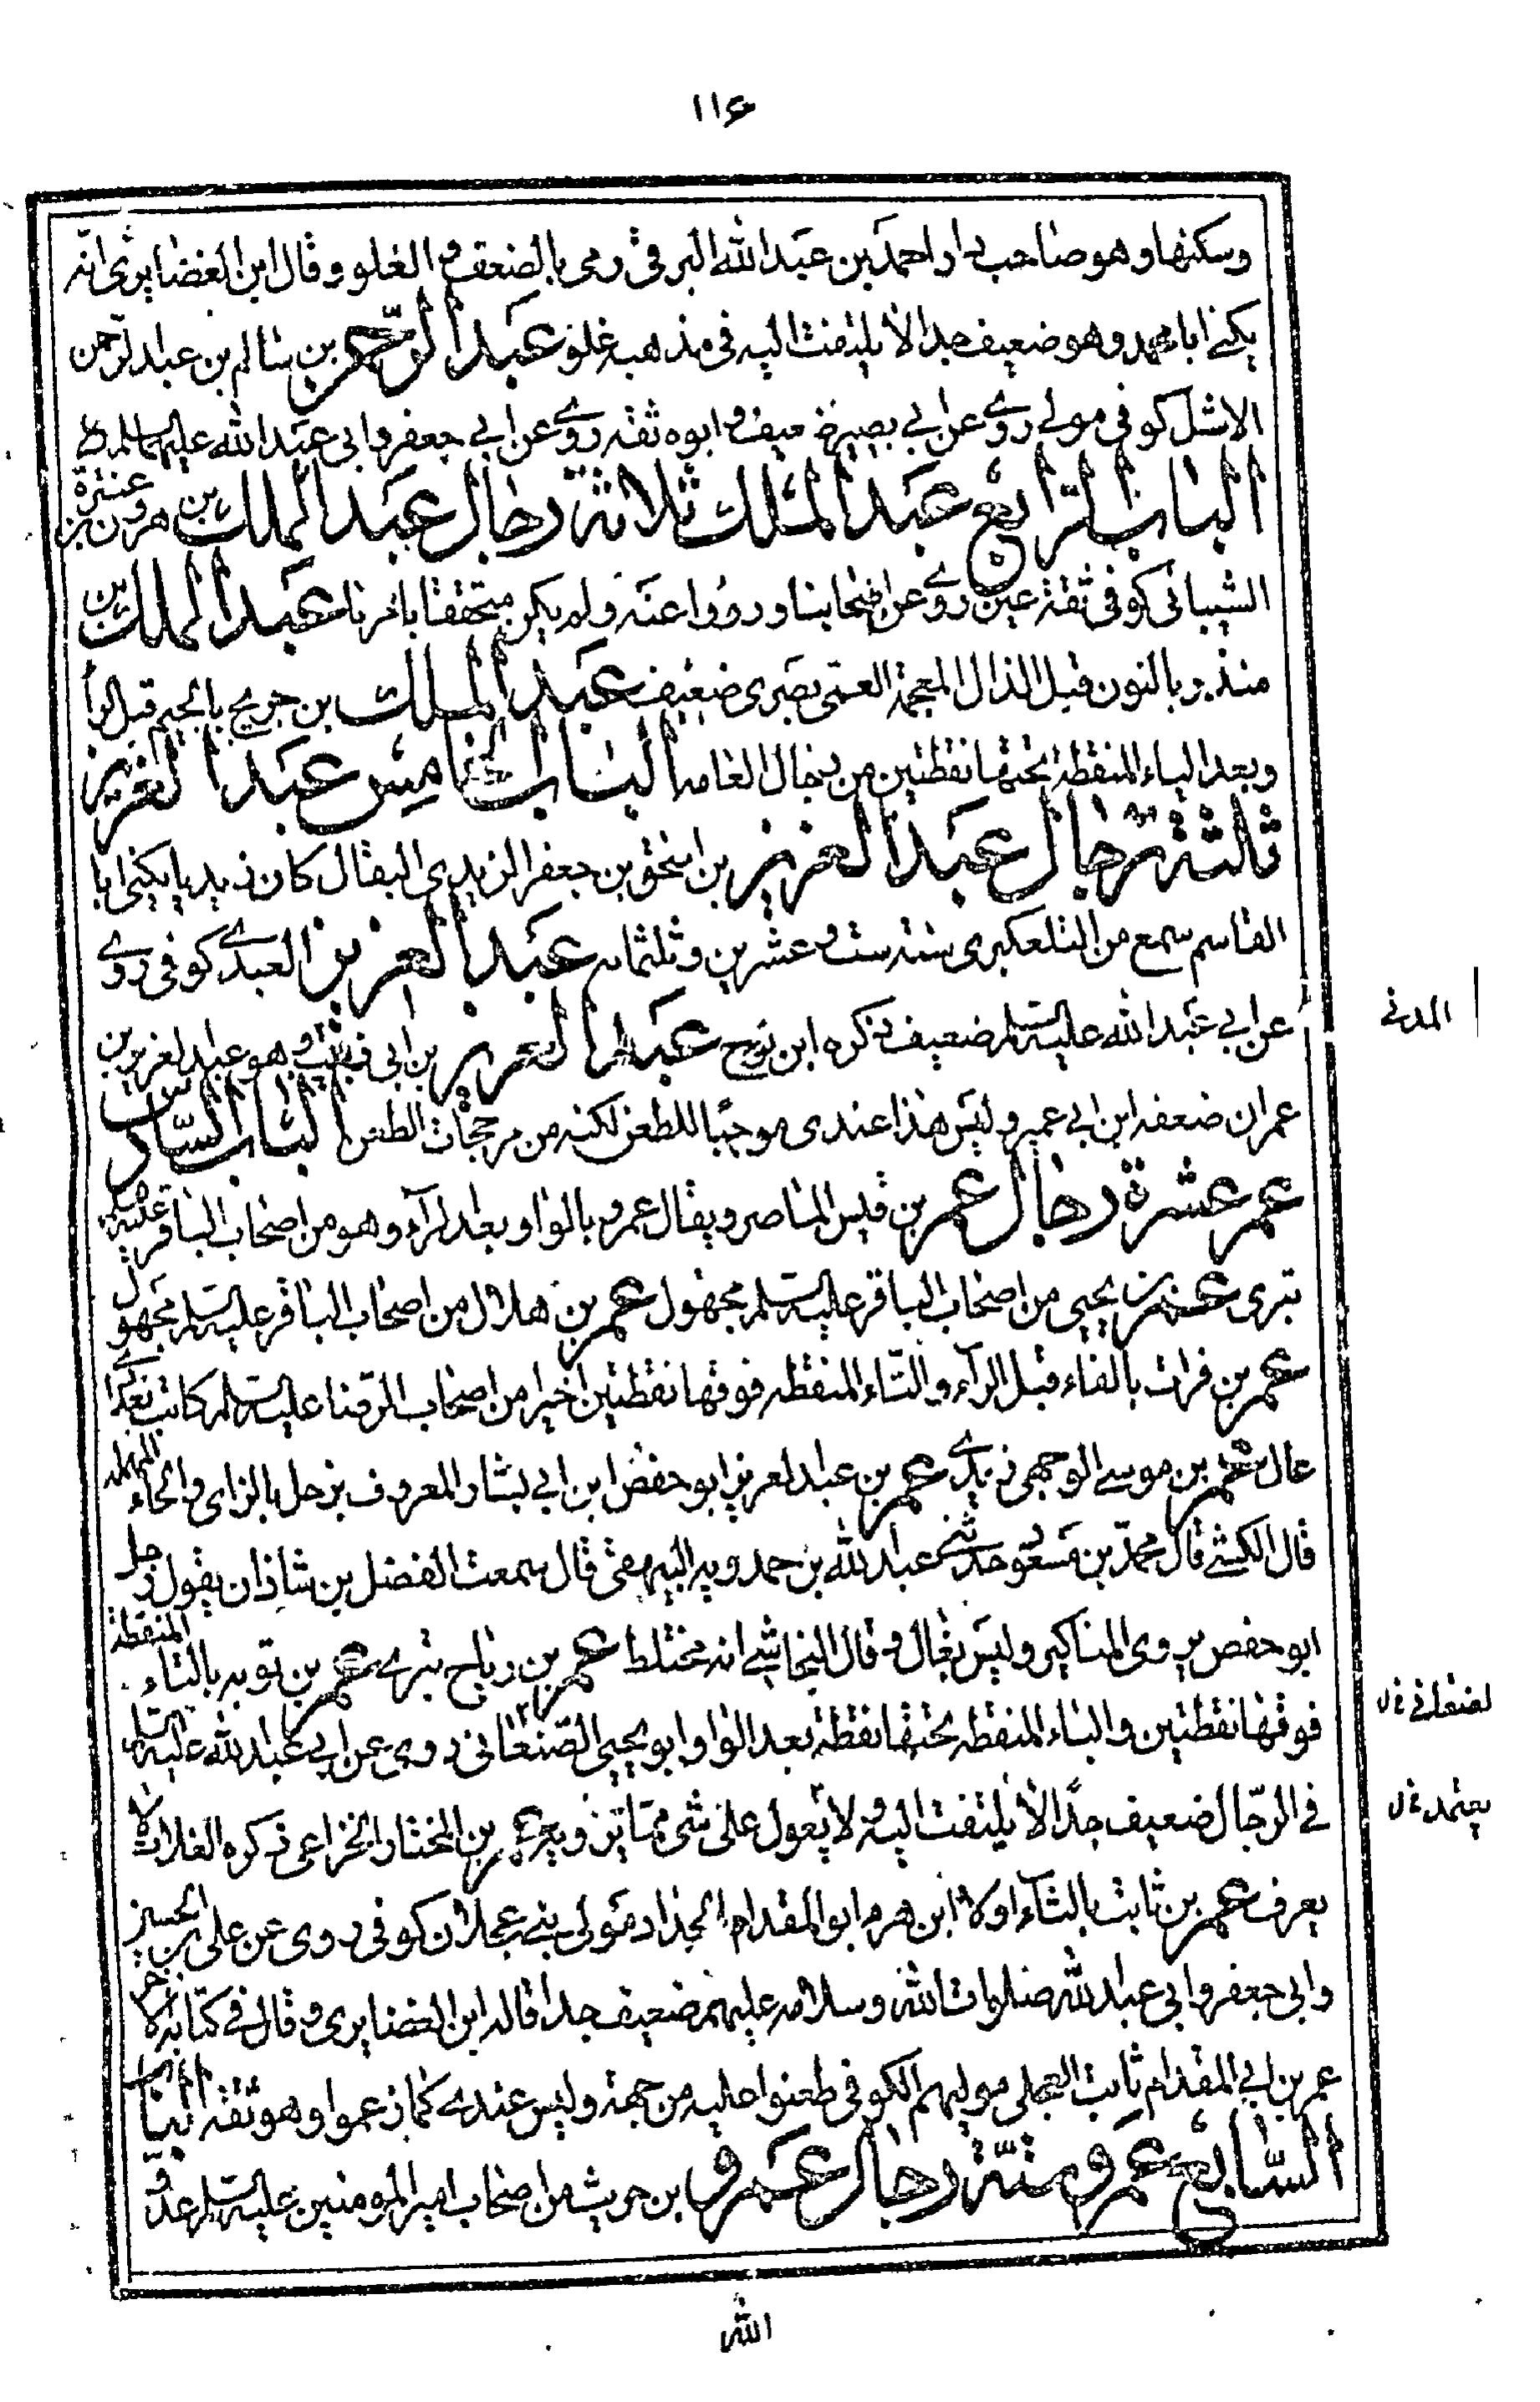 ١١۶
وسكنها وهو صاحب دار احمد بن عبد الله البرقى رمى بالضعف و الغلو وقال ابن الغضايرى انه
يكنى ابا محمد وهو ضعيف جدا لا يلتفت اليه فى مذهبه غلو عبد الرحمن بن سالم بن عبد الرحمن
الاشل كوفى مولى روى عن ابى بصير ضعيف و ابوه ثقة روى عن ابى جعفر وابى عبد الله عليهما السلم
الباب الرابع عبد الملك ثلاثة رجال عبد الملك بن هرون بن عنترة
الشيبانى كوفى ثقة عين روى عن اصحابنا ورووا عنه ولم يكن متحققا بامرنا عبد الملك بن
منذر بالنون قبل الذال المعجمة العمى بصرى ضعيف عبد الملك بن جريج بالجيم قبل الراء
وبعد الياء المنقطة تحتها نقطتين من رجال العامه الباب الخامس عبد العزيز
ثلثة رجال عبد العزيز بن اسحق بن جعفر الزيدى البقال كان زيديا يكنى ابا
القاسم سمع من التلعكبرى سنة ست و عشرين وثلثمائه عبد العزيز العبدى كوفى روى
عن ابى عبد الله عليه السلم ضعيف ذكره ابن نوح عبد العزيز بن ابى ذئب و هو عبد العزيز بن
المدنى
عمران ضعفه ابن ابى عمير وليس هذا عندى موجبا للطعن لكنه من مرجحات الطعن الباب السادس
عمر عشرة رجال عمر بن قيس الماصر ويقال عمرو بالواو بعد الرآء وهو من اصحاب الباقر عليه السلم
تبرى عمر بن يحيى من اصحاب الباقر عليه السلم مجهول عمر بن هلال من اصحاب الباقر عليه السلم مجهول
عمر بن فرات بالفاء قبل الرآء والتاء المنقطه فوقها نقطتين اخيرا من اصحاب الرضا عليه السلم كاتب بغدادى
غال عمر بن موسى الوجهى زيدى عمر بن عبد العزيز ابو حفص ابن ابى بشار المعروف بزحل بالزاى والحاء المهمله
قال الكشى قال محمد بن مسعود حدثنى عبد الله بن حمدويه البيهقى قال سمعت الفضل بن شاذان يقول زحل
ابو حفص يروى المناكير وليس بغال و قال النجاشى انه مختلط عمر بن رياح تبرى عمر بن توبه بالتاء المنقطة
فوقها نقطتين والباء المنقطه تحتها نقطة بعد الواو ابو يحيى الصنعانى روى عن ابى عبد الله عليه السلم
لضنعانى خ ل
فى الرجال ضعيف جدا لا يلتفت اليه و لا يعول على شى مما يرويه عمر بن المختار الخزاعى ذكره الغلات لا
يعتمد خ ل
يعرف عمر بن ثابت بالثآء اولا ابن هرم ابو المقدام الحداد مولى بنى عجلان كوفى روى عن على بن الحسين
وابى جعفر وابى عبد الله صلوات الله وسلامه عليهم ضعيف جدا قاله ابن الغضايرى و قال فى كتابه الاخر
عمر بن ابى المقدام ثابت العجلى موليهم الكوفى طعنوا عليه من جهة وليس عندى كما زعموا وهو ثقه الباب
السابع عمرو ستة رجال عمرو بن حريث من اصحاب امير المؤمنين عليه السلم عدو
الله